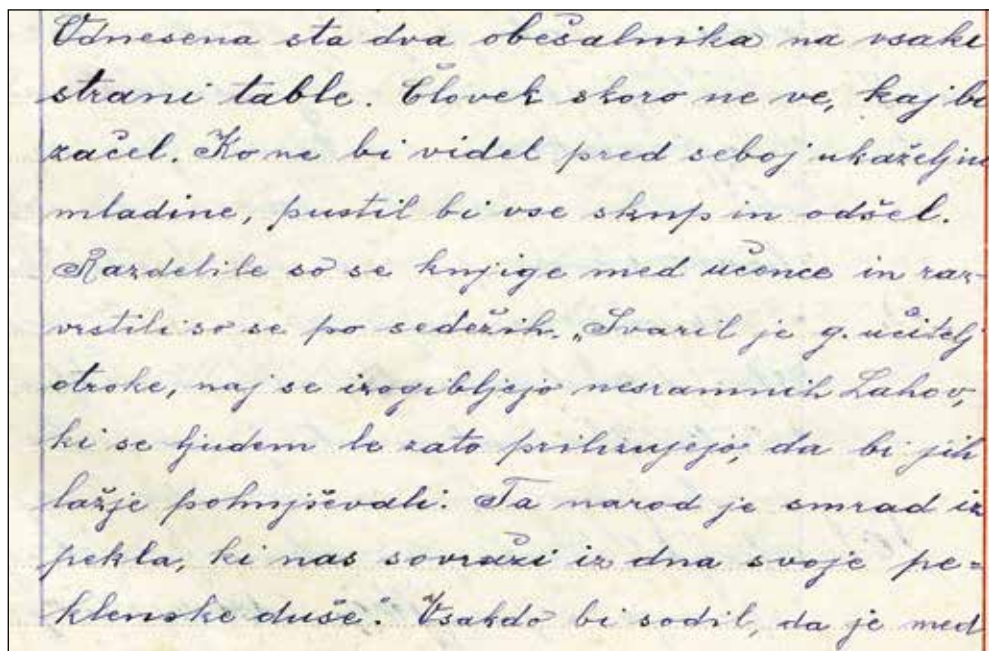 Odnesena sta dva obešalnika na vsaki
strani table. Človek skoro ne ve, kaj bi
začel. Ko ne bi videl pred seboj ukaželjne
mladine, pustil bi vse skup in odšel.
Razdelile so se knjige med učence in raz-
vrstili so se po sedežih. „Svaril je g. učitelj
otroke, naj se izogibljejo nesramnih Lahov,
ki se ljudem le zato prilizujejo, da bi jih
lažje pohujševali. Ta narod je smrad iz
pekla, ki nas sovraži iz dna svoje pe-
klenske duše“. Vsakdo bi sodil, da je med